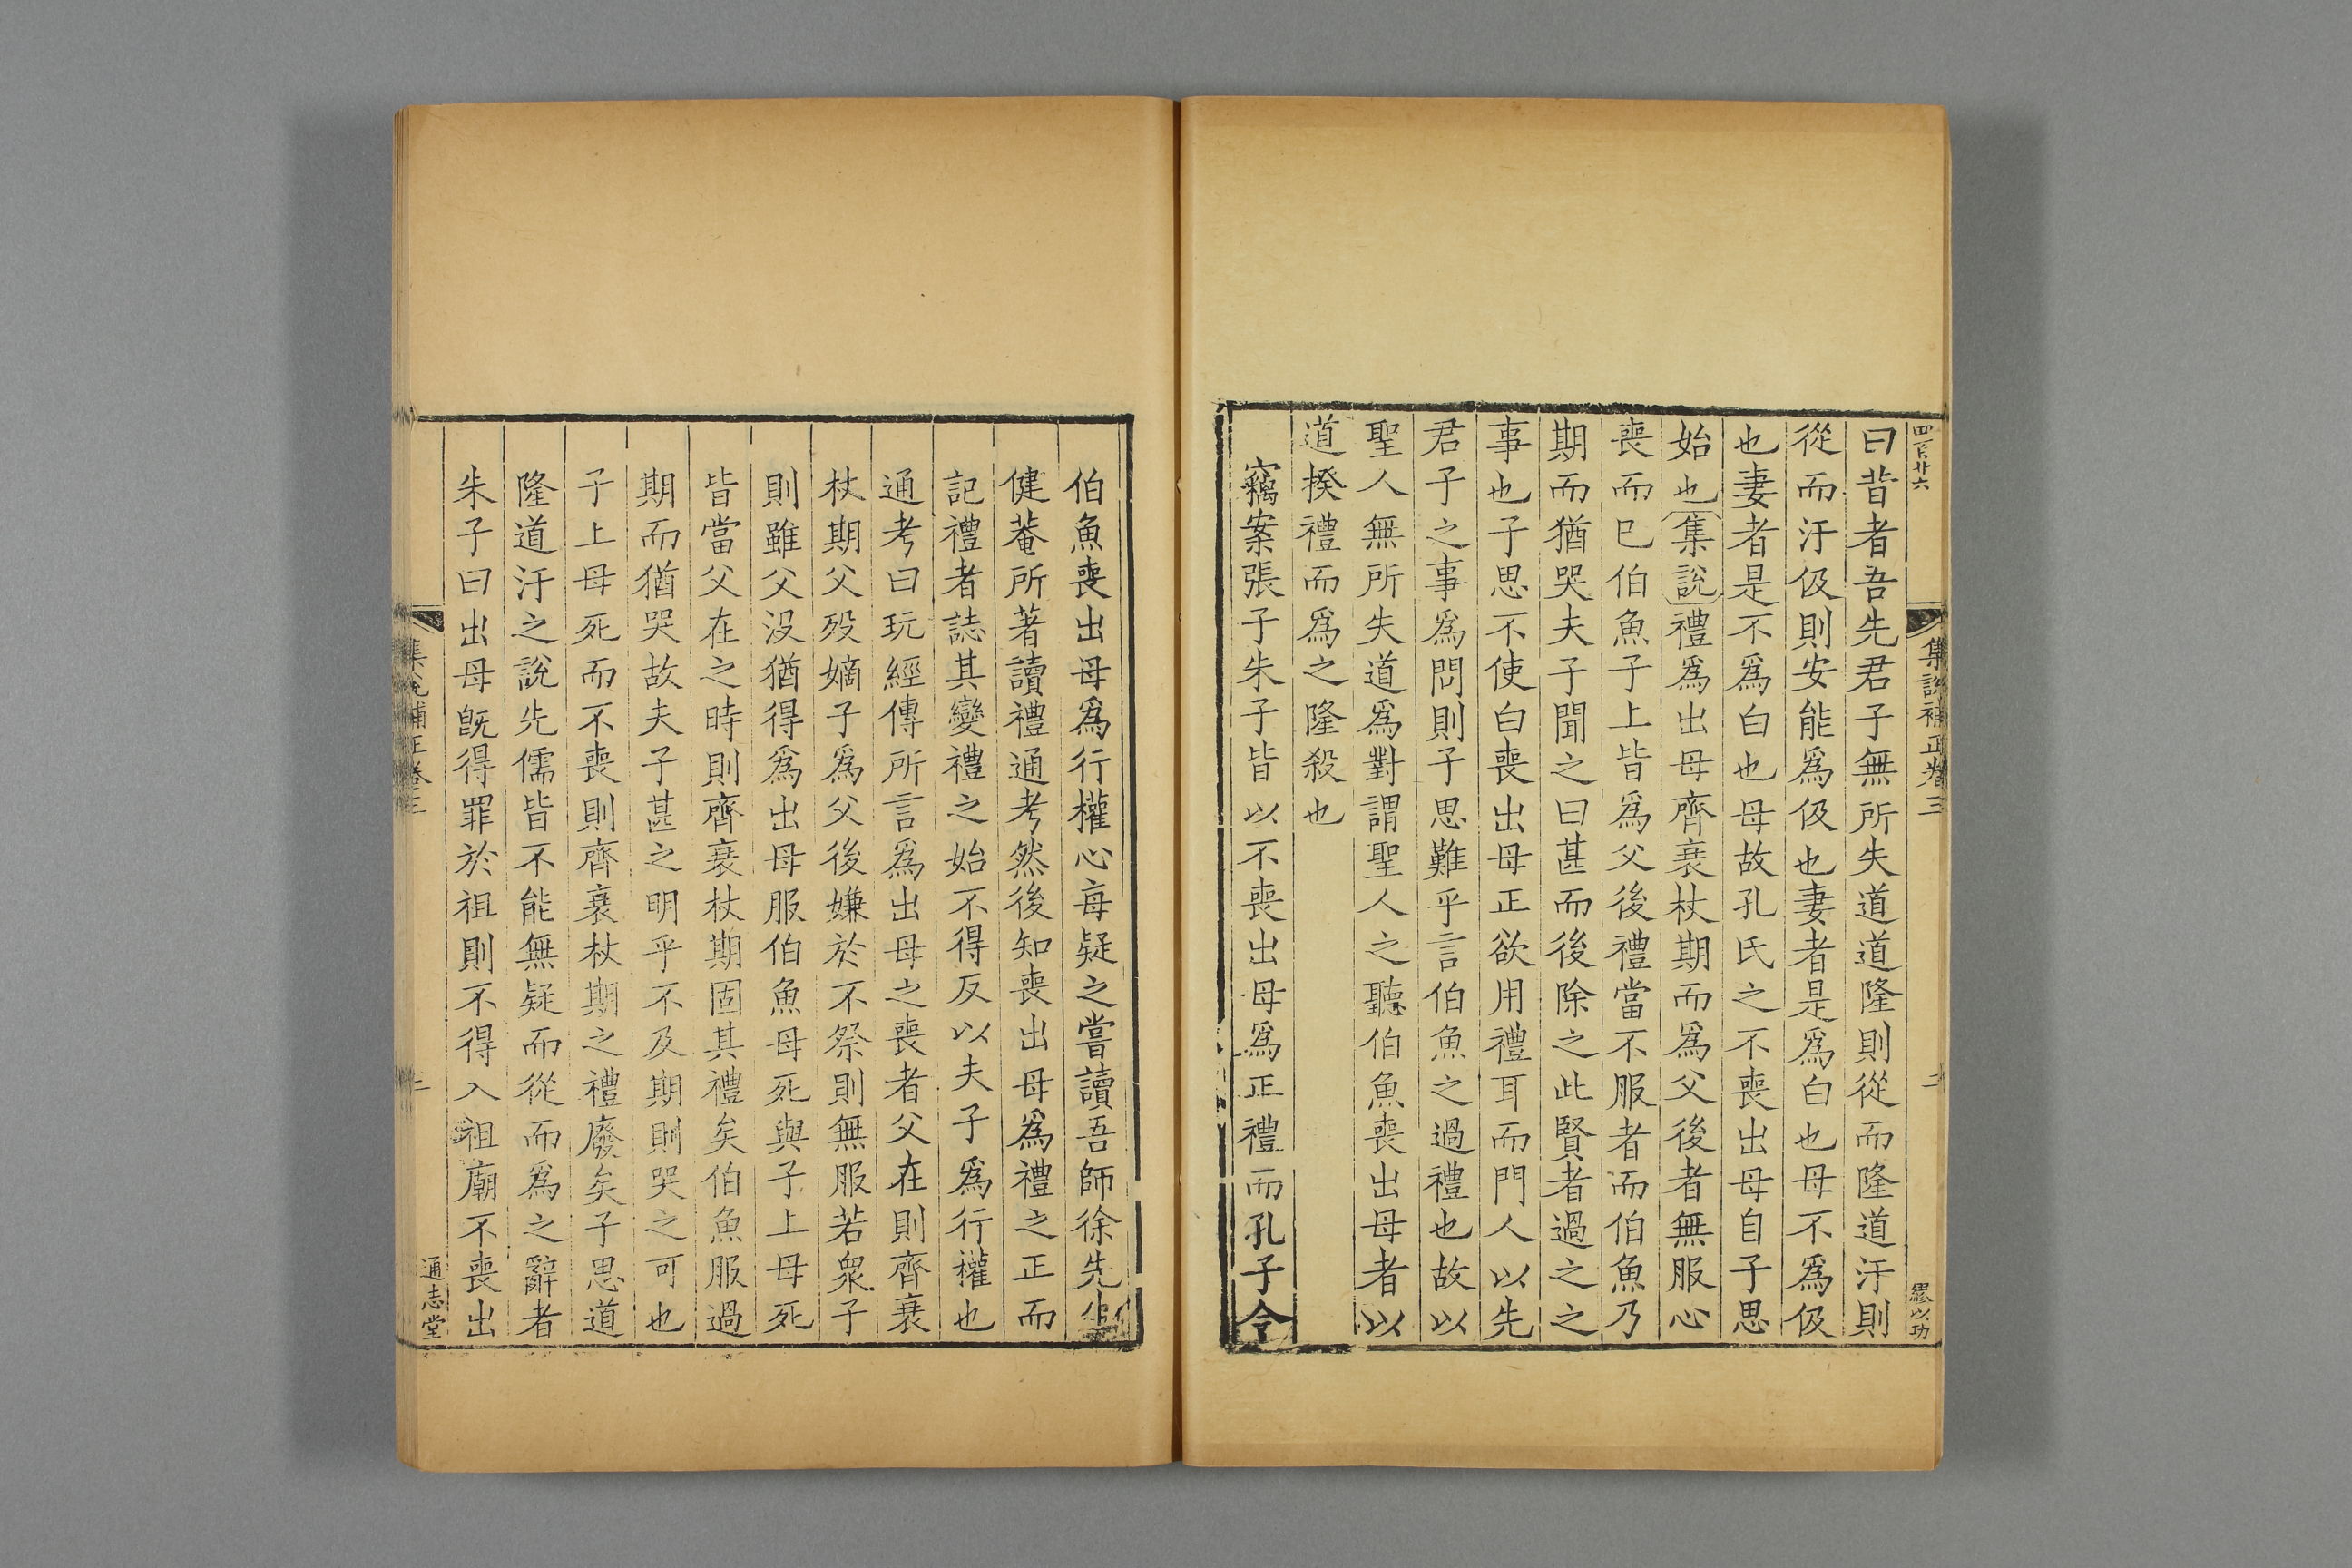 四百廿六
集說補正卷三
二
繆以功
曰昔者吾先君子無所失道道隆則從而隆道汙則
從而汙伋則安能爲伋也妻者是爲白也母不爲伋
也妻者是不爲白也母故孔氏之不喪出母自子思
始也集說禮爲出母齊衰杖期而爲父後者無服心
喪而已伯魚子上皆爲父後禮當不服者而伯魚乃
期而猶哭夫子聞之曰甚而後除之此賢者過之之
事也子思不使白喪出母正欲用禮耳而門人以先
君子之事爲問則子思難乎言伯魚之過禮也故以
聖人無所失道爲對謂聖人之聽伯魚喪出母者以
道揆禮而爲之隆殺也
竊案張子朱子皆以不喪出母爲正禮而孔子令
伯魚喪出母爲行權心每疑之嘗讀吾師徐先生
健菴所著讀禮通考然後知喪出母爲禮之正而
記禮者誌其變禮之始不得反以夫子爲行權也
通考曰玩經傳所言爲出母之喪者父在則齊衰
杖期父歿嫡子爲父後嫌於不祭則無服若衆子
則雖父没猶得爲出母服伯魚母死與子上母死
皆當父在之時則齊衰杖期固其禮矣伯魚服過
期而猶哭故夫子甚之明乎不及期則哭之可也
子上母死而不喪則齊衰杖期之禮廢矣子思道
隆道汙之說先儒皆不能無疑而從而爲之辭者
朱子曰出母旣得罪於祖則不得入祖廟不喪出
集說補正卷三
二
通志堂